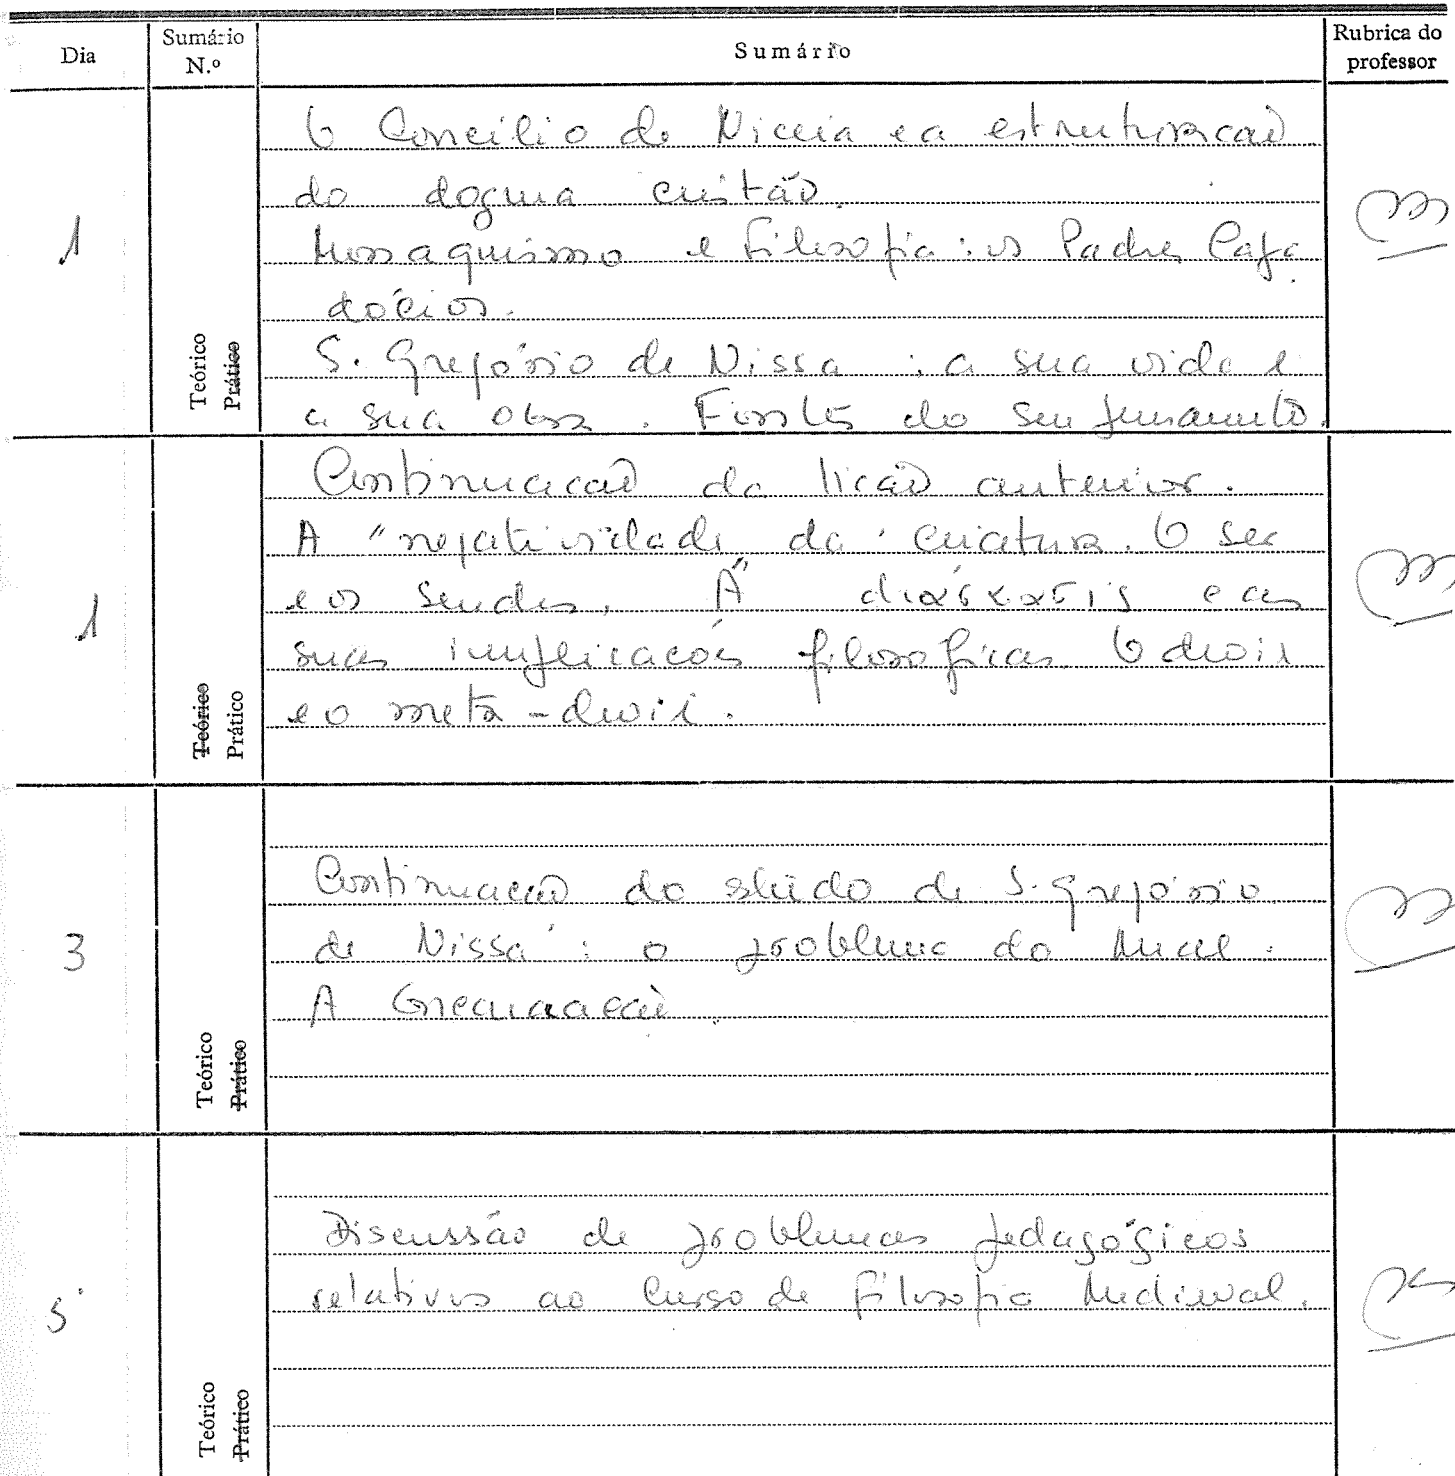 Dia
Sumário N.º
Sumário
Rubrica do professor
1
Teórico
Prático
O Concílio de Niceia e a estruturação
do dogma cristão.
Monaquismo e Filosofia: os Padres Capa
dócios.
S. Gregório de Nissa: a sua vida e
a sua obra. Fontes do seu pensamento.
1
Teórico
Prático
Continuação da lição anterior.
A "negatividade da criatura. O ser
e os sendes. A" διάστασις e as
suas implicações filosóficas. O
e o meta-
3
Teórico
Prático
Continuação do estudo de S. Gregório
de Nissa: o problema do mal.
A Encarnação.
5
Teórico
Prático
Discussão de problemas pedagógicos
relativos ao curso de Filosofia Medieval.